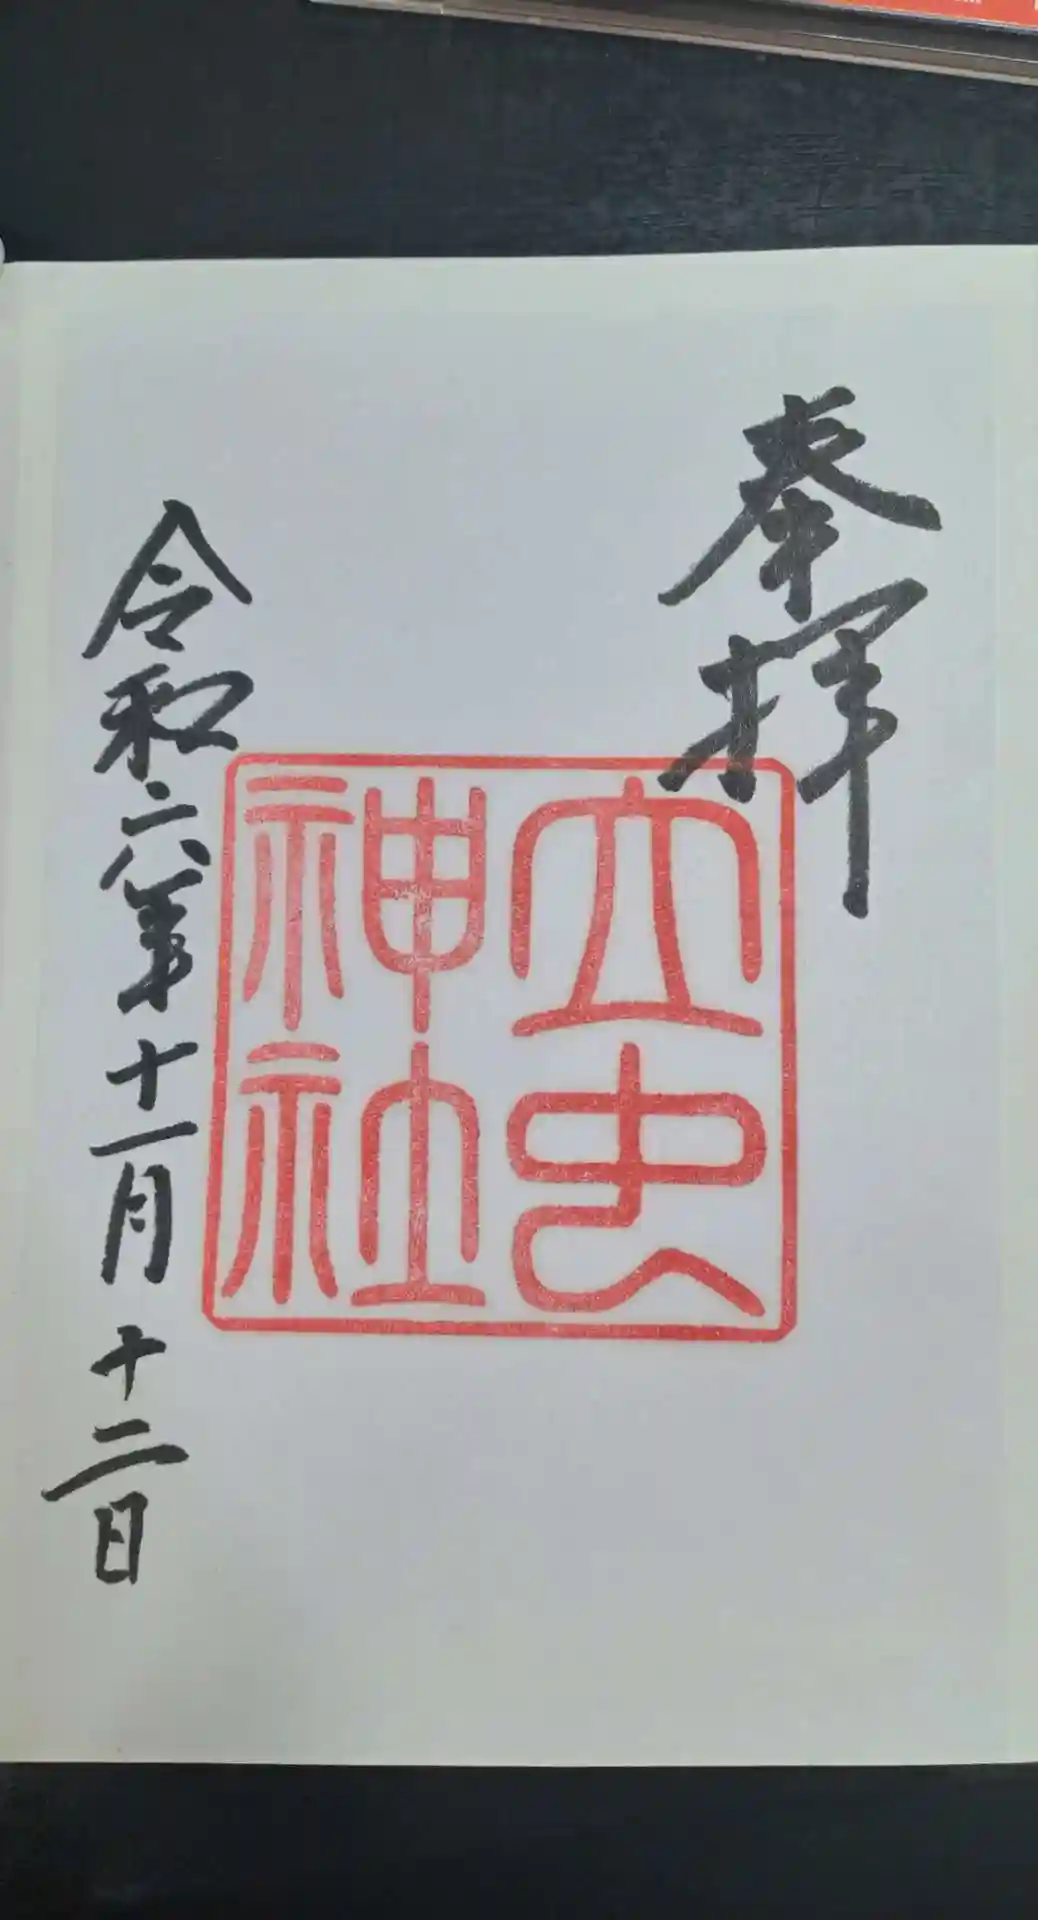 奉拝
立虫
神社
令和六年十一月十二日